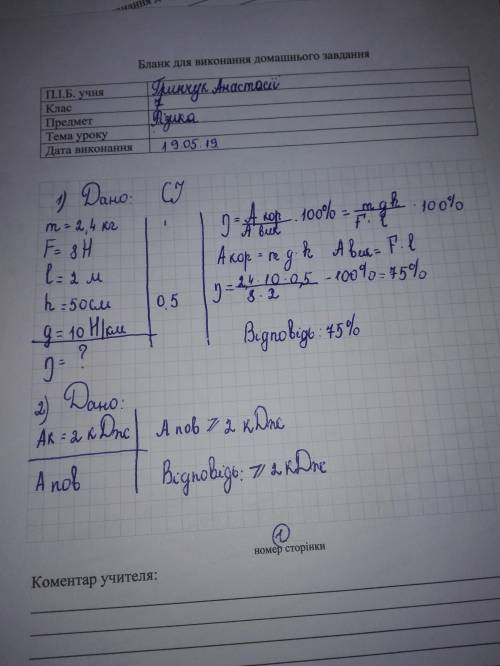 Бланк для виконання домашнього завдання
П.І.Б. учня Гринчук Анастасії
Клас 7
Предмет Фізика
Тема уроку
Дата виконання 19.05.19
1) Дано: СІ
m = 2,4 кг
F = 8Н
l = 2 м
h = 50см 0,5
g = 10 Н/км
η = ?
η = A кор / A вик · 100% = m g h / F · l · 100%
A кор = m g · h A вик = F · l
η = 2,4 · 10 · 0,5 / 8 · 2 · 100% = 75%
Відповідь: 75%
2) Дано:
Aк = 2 кДж
A пов
A пов ⩾ 2 кДж
Відповідь: ⩾ 2кДж
1
номер сторінки
Коментар учителя: